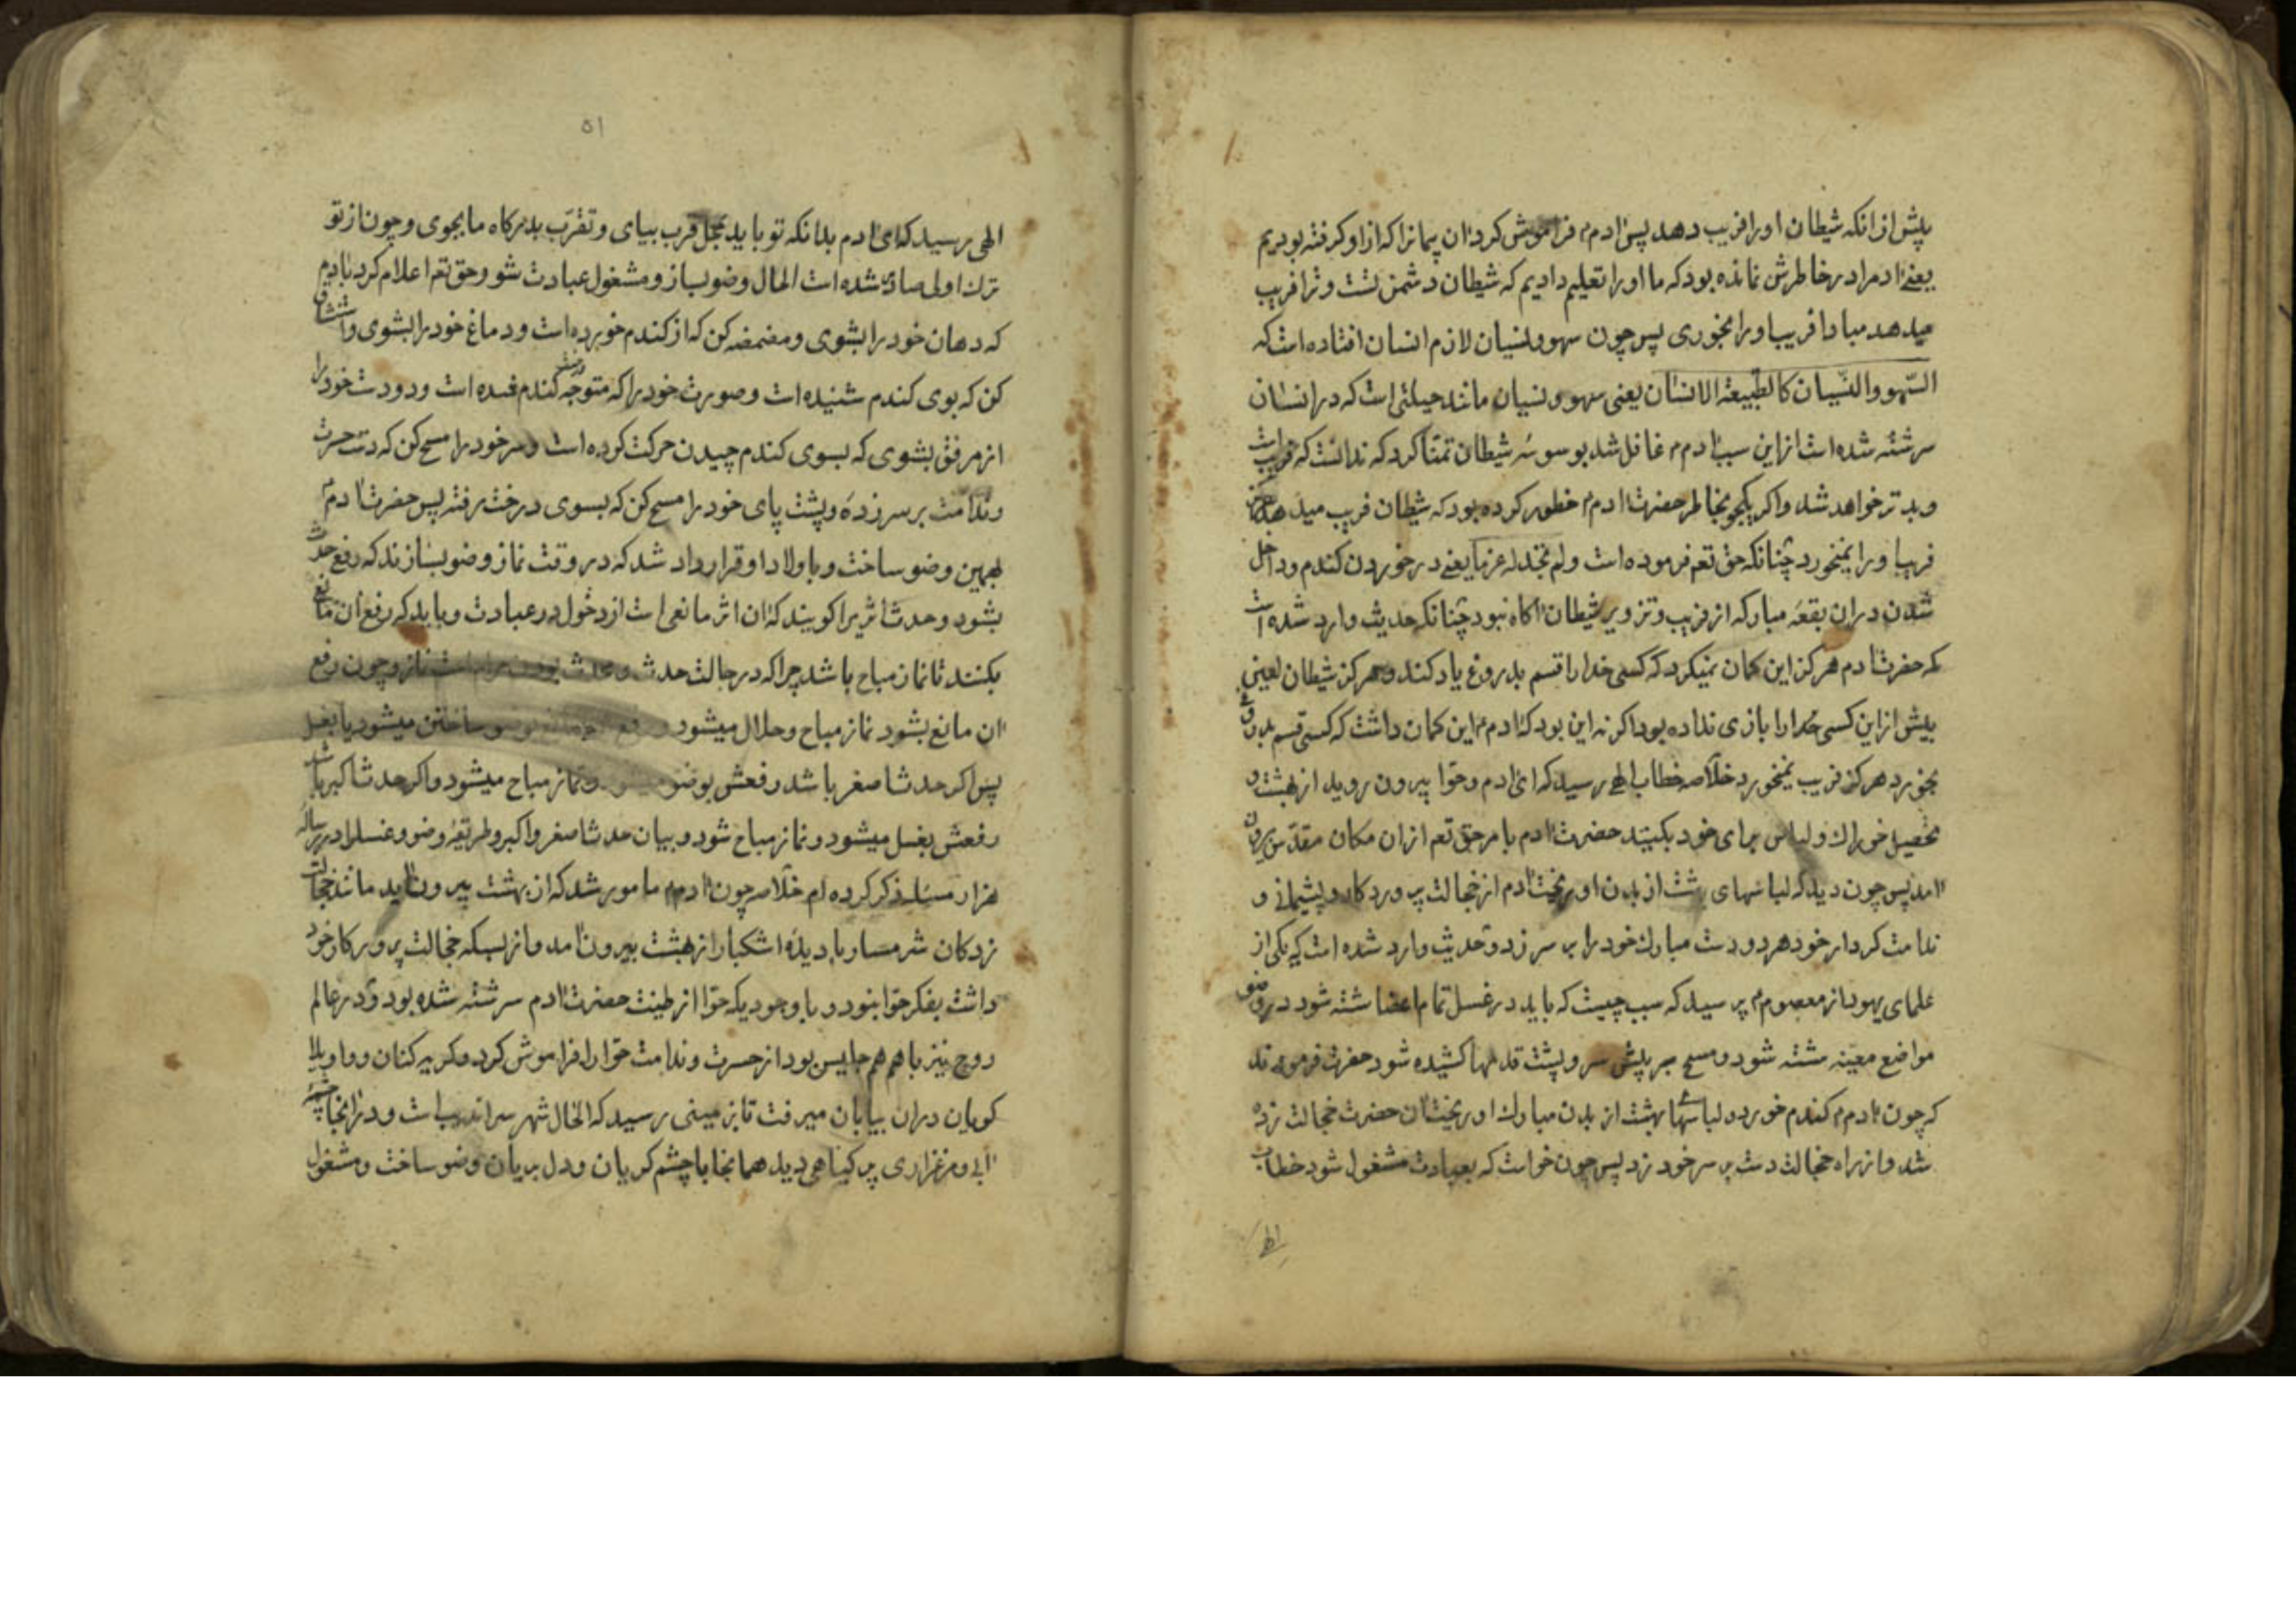 پیش از انکه شیطان او را فریب دهد پس ادم فراموش کرد ان پیمانرا که از او کرفته بودیم
یعنے ادم را در خاطرش نمانده بود که ما او را تعلیم دادیم که شیطان دشمن تست و ترا فریب
میدهد مبادا فریب او را بخوری پس چون سهو و نسیان لازم انسان افتاده است که
السّهو و النّسیان کالطّبیعة الانسان یعنی سهو و نسیان مانند جبلتی است که در انسان
سرشته شده است از این سبب ادم م غافل شد بوسوسهٔ شیطان تمنّا کرد که ندانست که خراب
و بدتر خواهد شد و اکر یکجو بخاطر حضرت ادم م خطور کرده بود که شیطان فریب میدهد هرکز
فریب او را نمیخورد چنانکه حق تعم فرموده است ولم نجد له عزما یعنے در خوردن کندم و داخل
شدن دران بقعهٔ مبارکه از فریب و تزویر شیطان اکاه نبود چنانکه حدیث وارد شده است
که حضرت ادم هرکز این کمان نمیکرد که کسی خدا را قسم بدروغ یاد کند و هرکز شیطان لعین
پیش از این کسی خدا را بازی نداده بود اکر نه این بود که ادم م این کمان داشت که کسی قسم بدروغ
بخورد هرکز فریب نمیخورد خلاصه خطاب الهے رسید که ای ادم و حوّا بیرون روید از بهشت و
تحصیل خوراک و لباس برای خود بکنید حضرت ادم بامر حق تعم از ان مکان مقدّس بیرون
امد پس چون دید که لباسهای بهشت از بدن او ریخت ادم از خجالت پروردکار و پشیمانے و
ندامت کردار خود هر دو دست مبارک خود را بر سر زد و حدیث وارد شده است که یکی از
علمای یهود از معصوم م پرسید که سبب چیست که باید در غسل تمام اعضا شسته شود در وضو
مواضع معیّنه شسته شود و مسح بر پیش سر و پشت قدمها کشیده شود حضرت فرمودند
که چون ادم م کندم خورد و لباسهای بهشت از بدن مبارک او ریخت ان حضرت خجالت زده
شد و از راه خجالت دست بر سر خود زد پس چون خواست که بعبادت مشغول شود خطاب
الهی
۵۱
الهی رسید که ای ادم بدانکه تو باید بمحل قرب بیای و تقرّب بدرکاه ما بجوی و چون از تو
ترک اولی صادر شده است الحال وضو بساز و مشغول عبادت شو و حق تعم اعلام کرد بادم
که دهان خود را بشوی و مضمضه کن که از کندم خورده است و دماغ خود را بشوی و استنشاق
کن که بوی کندم شنیده است و صورت خود را که متوجّه کندم شده است و دو دست خود را
از مرفق بشوی که بسوی کندم چیدن حرکت کرده است و سر خود را مسح کن که دست حسرت
و ندامت بر سر زدهٔ و پشت پای خود را مسح کن که بسوی درخت رفته پس حضرت ادم م
بهمین وضو ساخت و با اولاد او قرار داد شد که در وقت نماز وضو بسازند که رفع حدث
بشود و حدث اثریرا کویند که ان اثر مانعی است از دخول در عبادت و باید که رفع ان مانع
بکنند تا نماز مباح باشد چرا که در حالت حدث و محدث بودن حرام است نماز و چون رفع
ان مانع بشود نماز مباح و حلال میشود و رفع ساختن میشود یا بغسل
پس اکر حدث اصغر باشد رفعش بوضو میشود و نماز مباح میشود و اکر حدث اکبر باشد
رفعش بغسل میشود و نماز مباح شود و بیان حدث اصغر و اکبر و طریقهٔ وضو و غسل را در رساله
هزار مسئله ذکر کرده ام خلاصه چون ادم م مامور شد که از بهشت بیرون اید مانند خجالت
زدکان شرمسار با دیدهٔ اشکبار از بهشت بیرون امد و از بسکه خجالت پرورکار خود
داشت بفکر حوّا نبود و با وجودیکه حوّا از طینت حضرت ادم سرشته شده بود و در عالم
روح نیز با هم هم جلیس بود از حسرت و ندامت حوّا را فراموش کرد و کریه کنان و واویلا
کویان دران بیابان میرفت تا بزمینی رسید که الحال شهر سراندیب است و در انجا چشمهٔ
ابی و مرغزاری پر کیاهی دید همانجا با چشم کریان و دل بریان وضو ساخت و مشغول